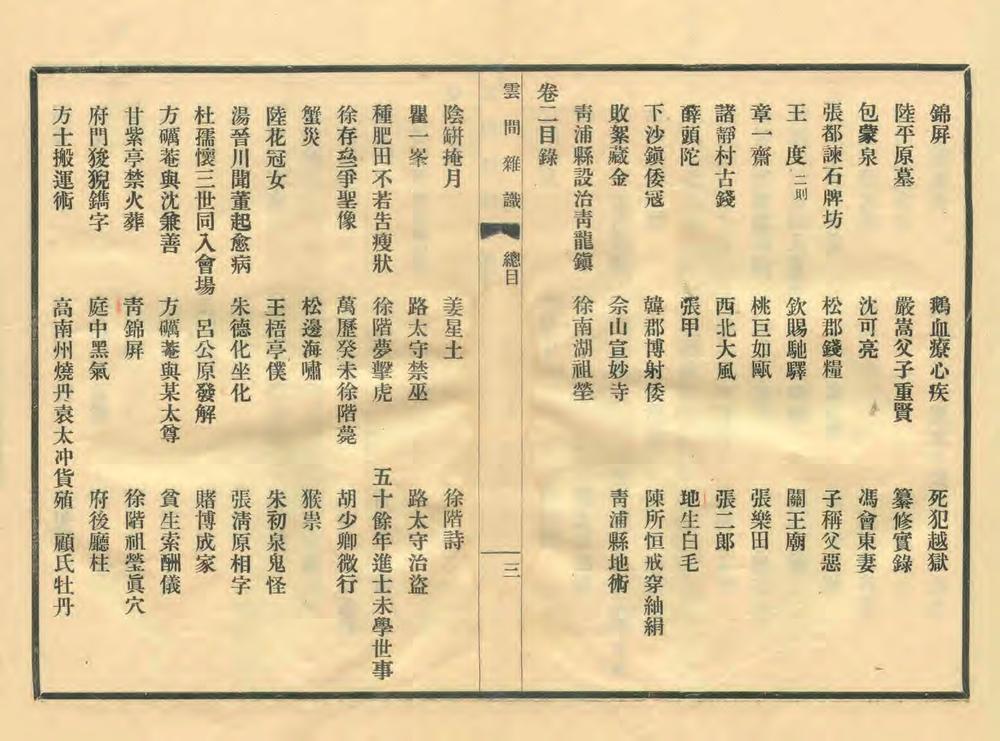 錦屏　鵝血療心疾　死犯越獄
陸平原墓　嚴嵩父子重賢　纂修實錄
包蒙泉　沈可亮　馮會東妻
張都諫石牌坊　松郡錢糧　子稱父惡
王　度二則　欽賜馳驛　關王廟
章一齋　桃巨如甌　張樂田
諸靜村古錢　西北大風　張二郎
薛頭陀　張甲　地生白毛
下沙鎭倭寇　韓郡博射倭　陳所恒戒穿紬絹
敗絮藏金　佘山宣妙寺　靑浦縣地術
靑浦縣設治靑龍鎭　徐南湖祖塋
卷二目錄
雲間雜識　總目　三
陰缾掩月　姜星士　徐階詩
瞿一峯　路太守禁巫　路太守治盜
種肥田不若告瘦狀　徐階夢擊虎　五十餘年進士未學世事
徐存叅爭聖像　萬曆癸未徐階薨　胡少卿微行
蟹災　松邊海嘯　猴祟
陸花冠女　王梧亭僕　朱初泉鬼怪
湯晉川聞董起愈病　朱德化坐化　張淸原相字
杜孺懷三世同入會場　呂公原發解　賭博成家
方礪菴與沈兼善　方礪菴與某太尊　貧生索酬儀
甘紫亭禁火葬　靑錦屏　徐階祖塋眞穴
府門狻猊鐫字　庭中黑氣　府後廳柱
方士搬運術　高南州燒丹袁太冲貨殖　顧氏牡丹